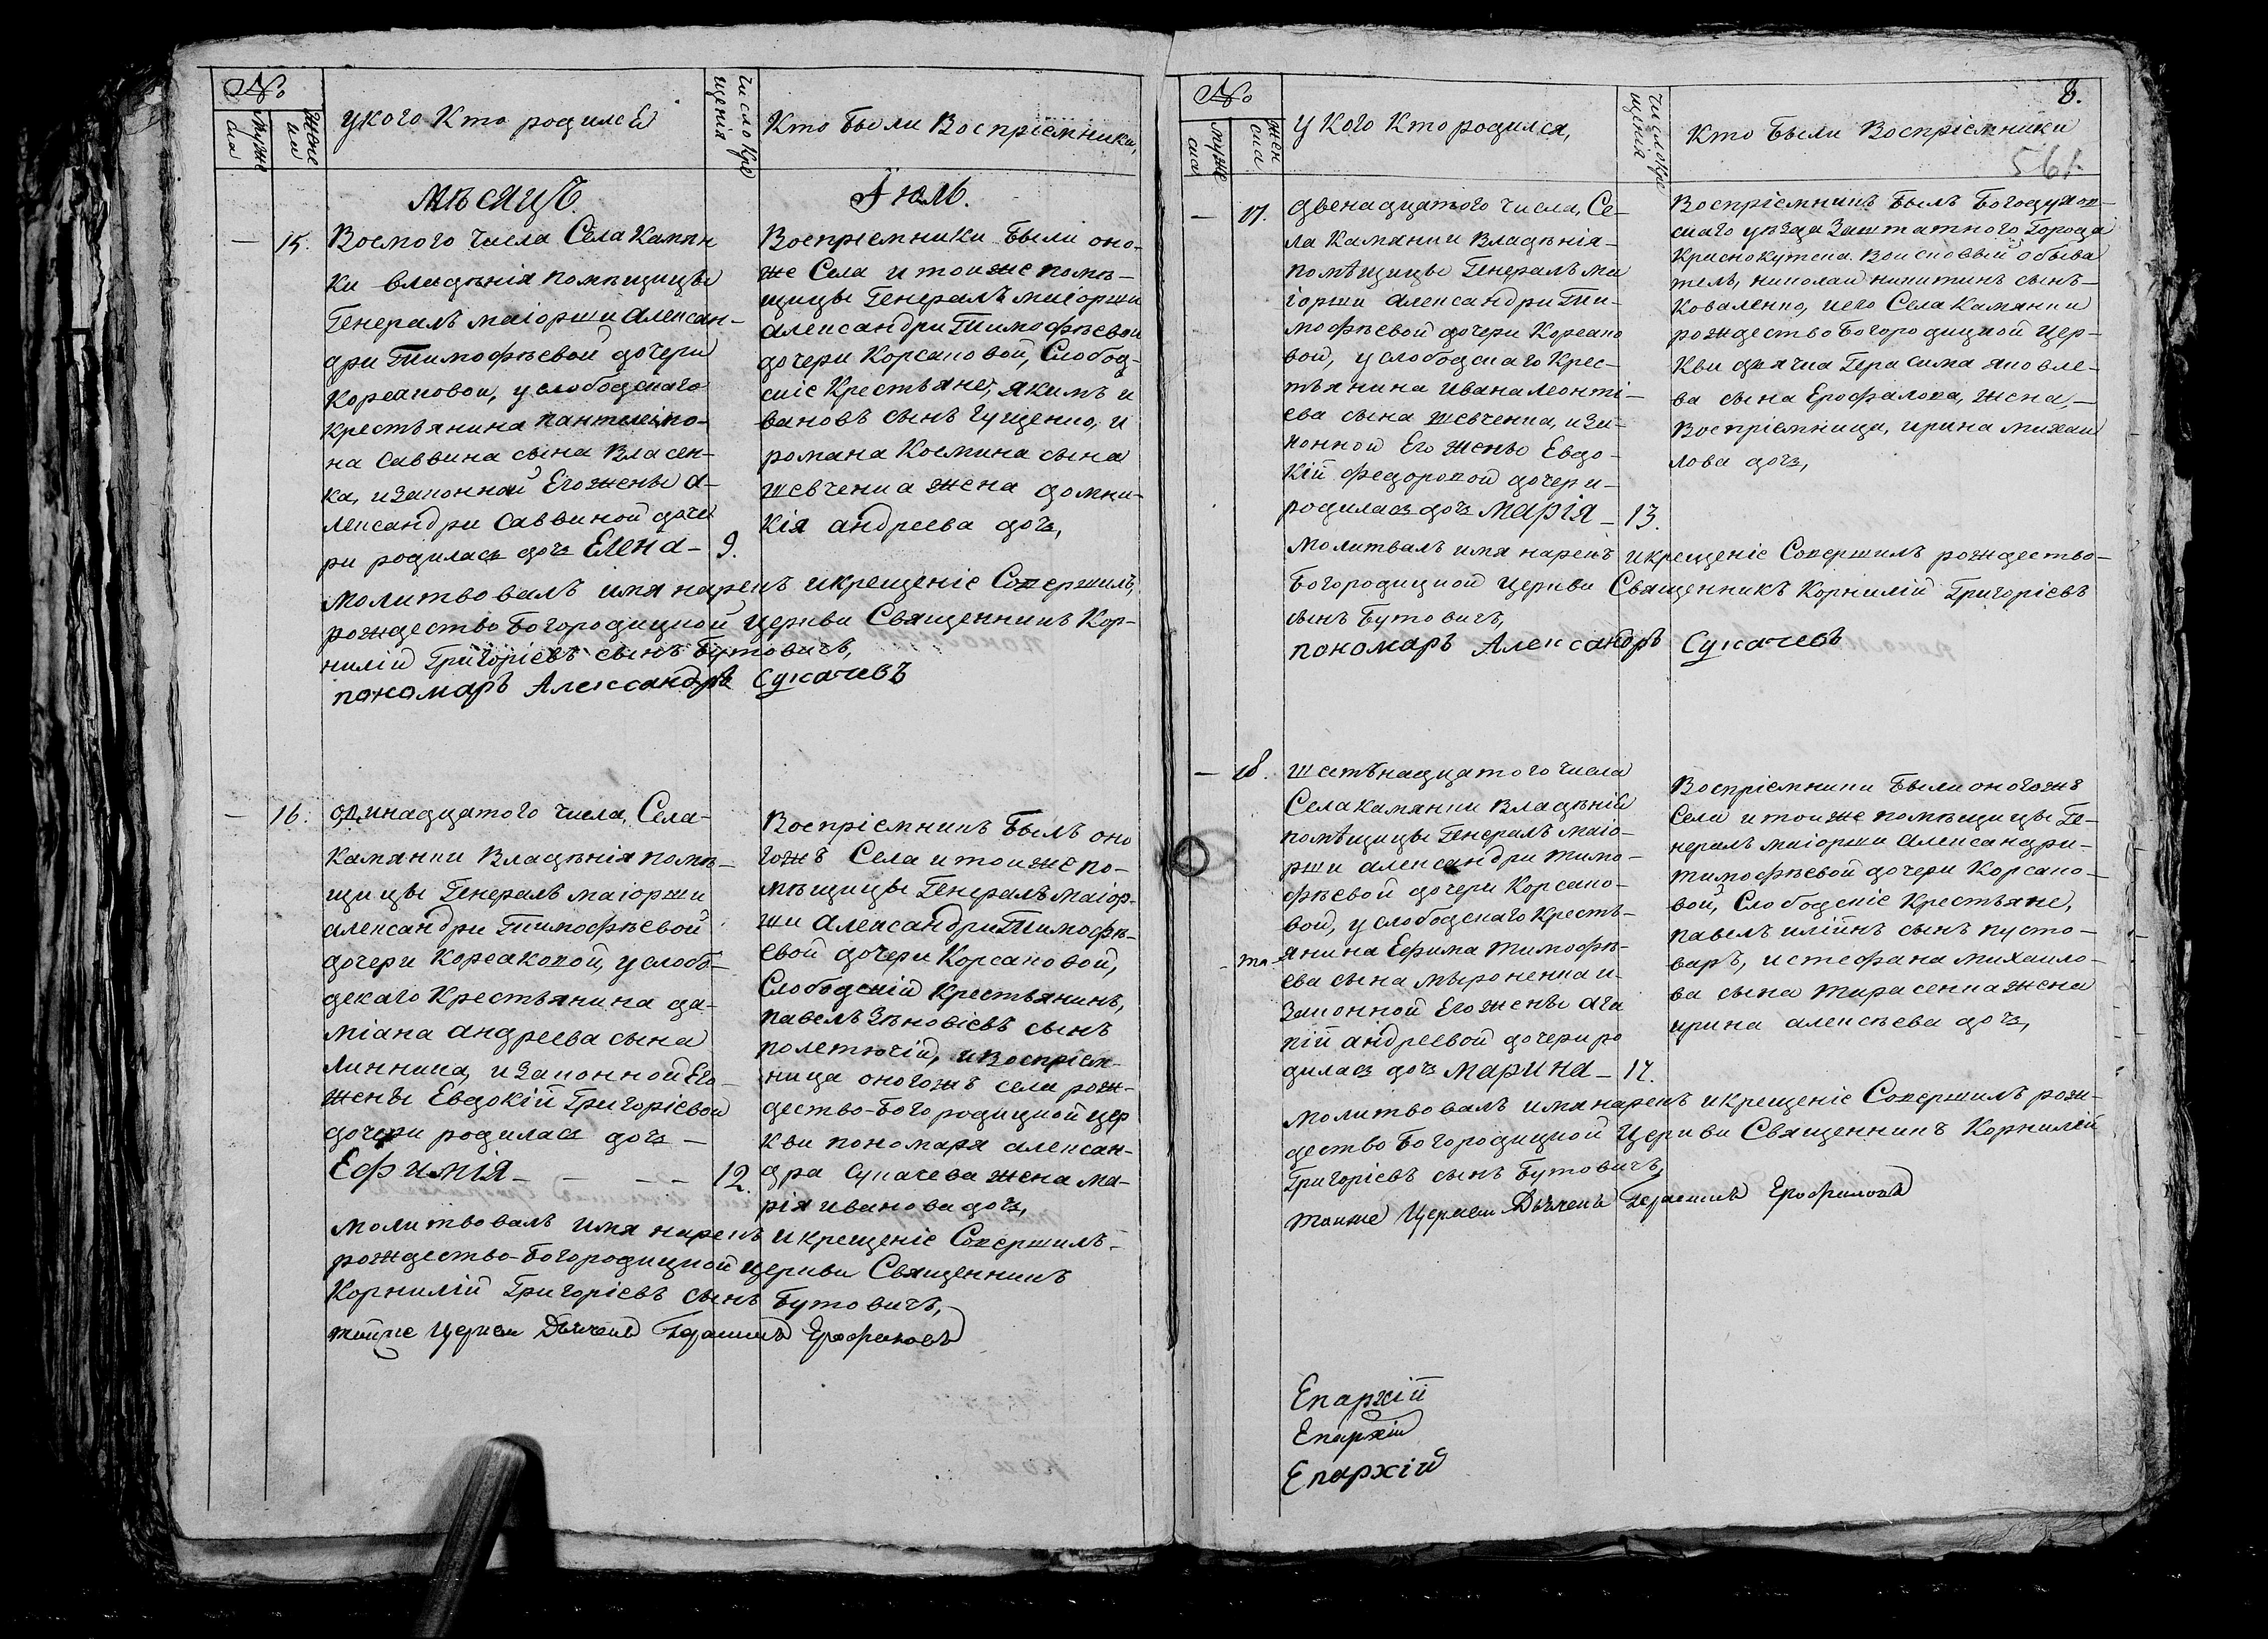 №
Муже
ска
Жене
ка
укого Кто родился
число кре
щенія
Кто были Воспріемники,
Мѣсяцъ.
Іюль.
—
15.
Восмого числа Села Камян
ки владѣнія помѣщицы
Генералъ маіорши Алексан-
дри Тимофѣевой дочери
Корсаковой, услободскаго
крестьянина Пантелеімо-
на Саввина сына Власен-
ка, изаконной Егожены А-
лександри Саввиной доче
ри родилась дочь Елена — 9.
Воспріемники были оно-
же Села и тоиже помѣ-
щицы Генералъ маіорши
александри Тимофѣевои
дочери Корсаковой, Слобод-
скіе Крестьяне, якимъ и
вановъ сынъ Гущенко, и
романа Космина сына
шевченка жена домни-
кія андреева дочь,
Молитвовалъ имя нарекъ икрещеніе Совершилъ,
рождество Богородицкой церкви Священникъ Кор-
нилій Григоріевъ сынъ Бутовичъ,
пономаръ Александръ Сукачевъ
—
16.
одинадцатого числа, Села-
Камянки Владѣнія помѣ-
щицы Генералъ маіорши
александри Тимофѣевой
дочери Корсаковой, услобо-
дскаго Крестьянина да-
міана андреева сына
Линника, изаконной Его-
жены Евдокій Григоріевой
дочери родилась дочь —
Ефимія — — — — 12.
Воспріемникъ былъ оно
гожъ Села итоижепо-
мѣщицы Генералъмаіор-
ши АлександриТимофѣ-
евой дочери Корсаковой,
Слободскій крестьянинъ,
павелъ Зѣновіевъ сынъ
полетючій, ивоспріем-
ница оногожъ села рож-
дество-Богородицкой цер
кви пономаря алексан-
дра Сукачева жена ма-
рія иванова дочь,
Молитвовалъ имя нарекъ икрещеніе Совершилъ-
рождество-Богородицкой церкви Священникъ
Корнилій Григоріевъ сынъ Бутовичъ,
тойже Церкви Дьячекъ Герасимъ Ерофаловъ
8.
№
муже
ска
жен
ска
у Кого Кто родился,
число кре
щенія
Кто были Воспріемники
561.
—
17.
двенадцатого числа, Се-
ла Камянки Владѣнія-
помѣщицы Генералъ ма
іорши александри Ти-
мофѣевой дочери Корсако
вой, услободскаго Крес-
тьянина ивана леонті-
ева сына шевченка, иза-
конной Его жены Евдо-
кій Федоровой дочери-
родилась дочь Марія — 13.
Воспріемникъ былъ Богодухов-
скаго уѣзда Заштатного Города
Краснокутска. Воисковый обыва
тель, николаи никитинъ сынъ-
Коваленко, иего Села Камянки
рождество Богородицкой Цер-
кви дьячка Герасима яковле-
ва сына Ерофалова, жена,—
Воспріемница, ирина михаи
лова дочь,
Молитвалъ имя нарекъ икрещеніе Совершилъ рождество-
Богородицкой Церкви Священникъ Корнилій Григоріевъ
сынъ Бутовичъ,
пономаръ Александръ Сукачевъ
—
18.
шестьнадцатого числа
Села камянки Владѣній
помѣщицы Генералъ маіо-
рши александри тимо-
фѣевой дочери Корсако-
вой, услободскаго кресть-
янина Ефима тимофѣ-
ева сына мыроненка и-
Законной Егожены ага
пій андреевой дочери ро
дилась дочь Марина — 17.
Воспріемники были оногожъ
Села и тоиже помѣщицы Ге-
нералъ маіорши александри-
тимофѣевой дочери Корсако-
вой, Слободскіе крестьяне,
павелъ илійнъ сынъ пусто-
варъ, и стефана михаило-
ва сына тарасенка жена
ирина алексѣева дочь,
Молитвовалъ имянарекъ икрещеніе Совершилъ рож-
дество Богородицкой Церкви Священникъ Корнилій
Григоріевъ сынъ Бутовичъ,
тойже Церкви Дьячекъ Герасимъ Ерофаловъ
Епархій
Епархій
Епархій